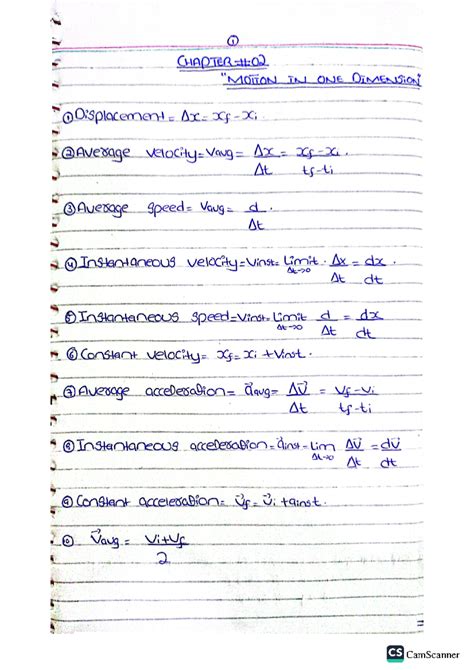 ①
CHAPTER #02
"MOTION IN ONE DIMENSION
① Displacement = Δx = xf - xi
② Average velocity = Vavg = Δx/Δt = xf - xi/tf - ti .
③ Average speed = Vavg = d/Δt .
④ Instantaneous velocity = Vinst = Limit Δt→0 . Δx/Δt = dx/dt .
⑤ Instantaneous speed = Vinst = Limit Δt→0 d/Δt = dx/dt
⑥ Constant velocity = xf = xi + Vinst .
⑦ Average acceleration = a⃗avg = ΔV⃗/Δt = Vf - Vi/tf - ti
⑧ Instantaneous acceleration = a⃗inst = Lim Δt→0 ΔV⃗/Δt = dV⃗/dt
⑨ Constant acceleration = V⃗f = V⃗i + ainst .
⑩ V⃗avg = Vi + Vf/2
CS CamScanner